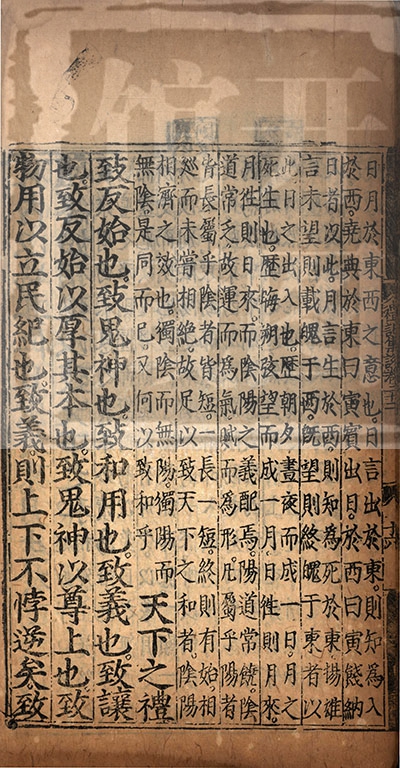 日月於東西之意也。日言出於東。則知為入
於西。堯典於東曰寅賓出日。於西曰寅餞納
日者以此。月言生於西。則知為死於東。揚雄
言未望則載魄于西。旣望則終魄于東者以
此。日之出入也。歷朝夕晝夜而成一日。月之
死生也。歷晦朔弦望而成一月。日徃則月來。
月徃則日來。而陰陽之義配焉。陽道常饒。陰
道常乏。故運而為氣。賦而為形。凡屬乎陽者
皆長。屬乎陰者皆短。一長一短。終則有始。相
廵而未嘗相絕。故足以致天下之和者。陰陽
相濟之效也。獨陰而無陽。獨陽而
無陰。是同而已。又何以致和乎
天下之禮
致反始也。致鬼神也。致和用也。致義也。致讓
也。致反始以厚其本也。致鬼神以尊上也。致
物用以立民紀也。致義。則上下不悖逆矣。致